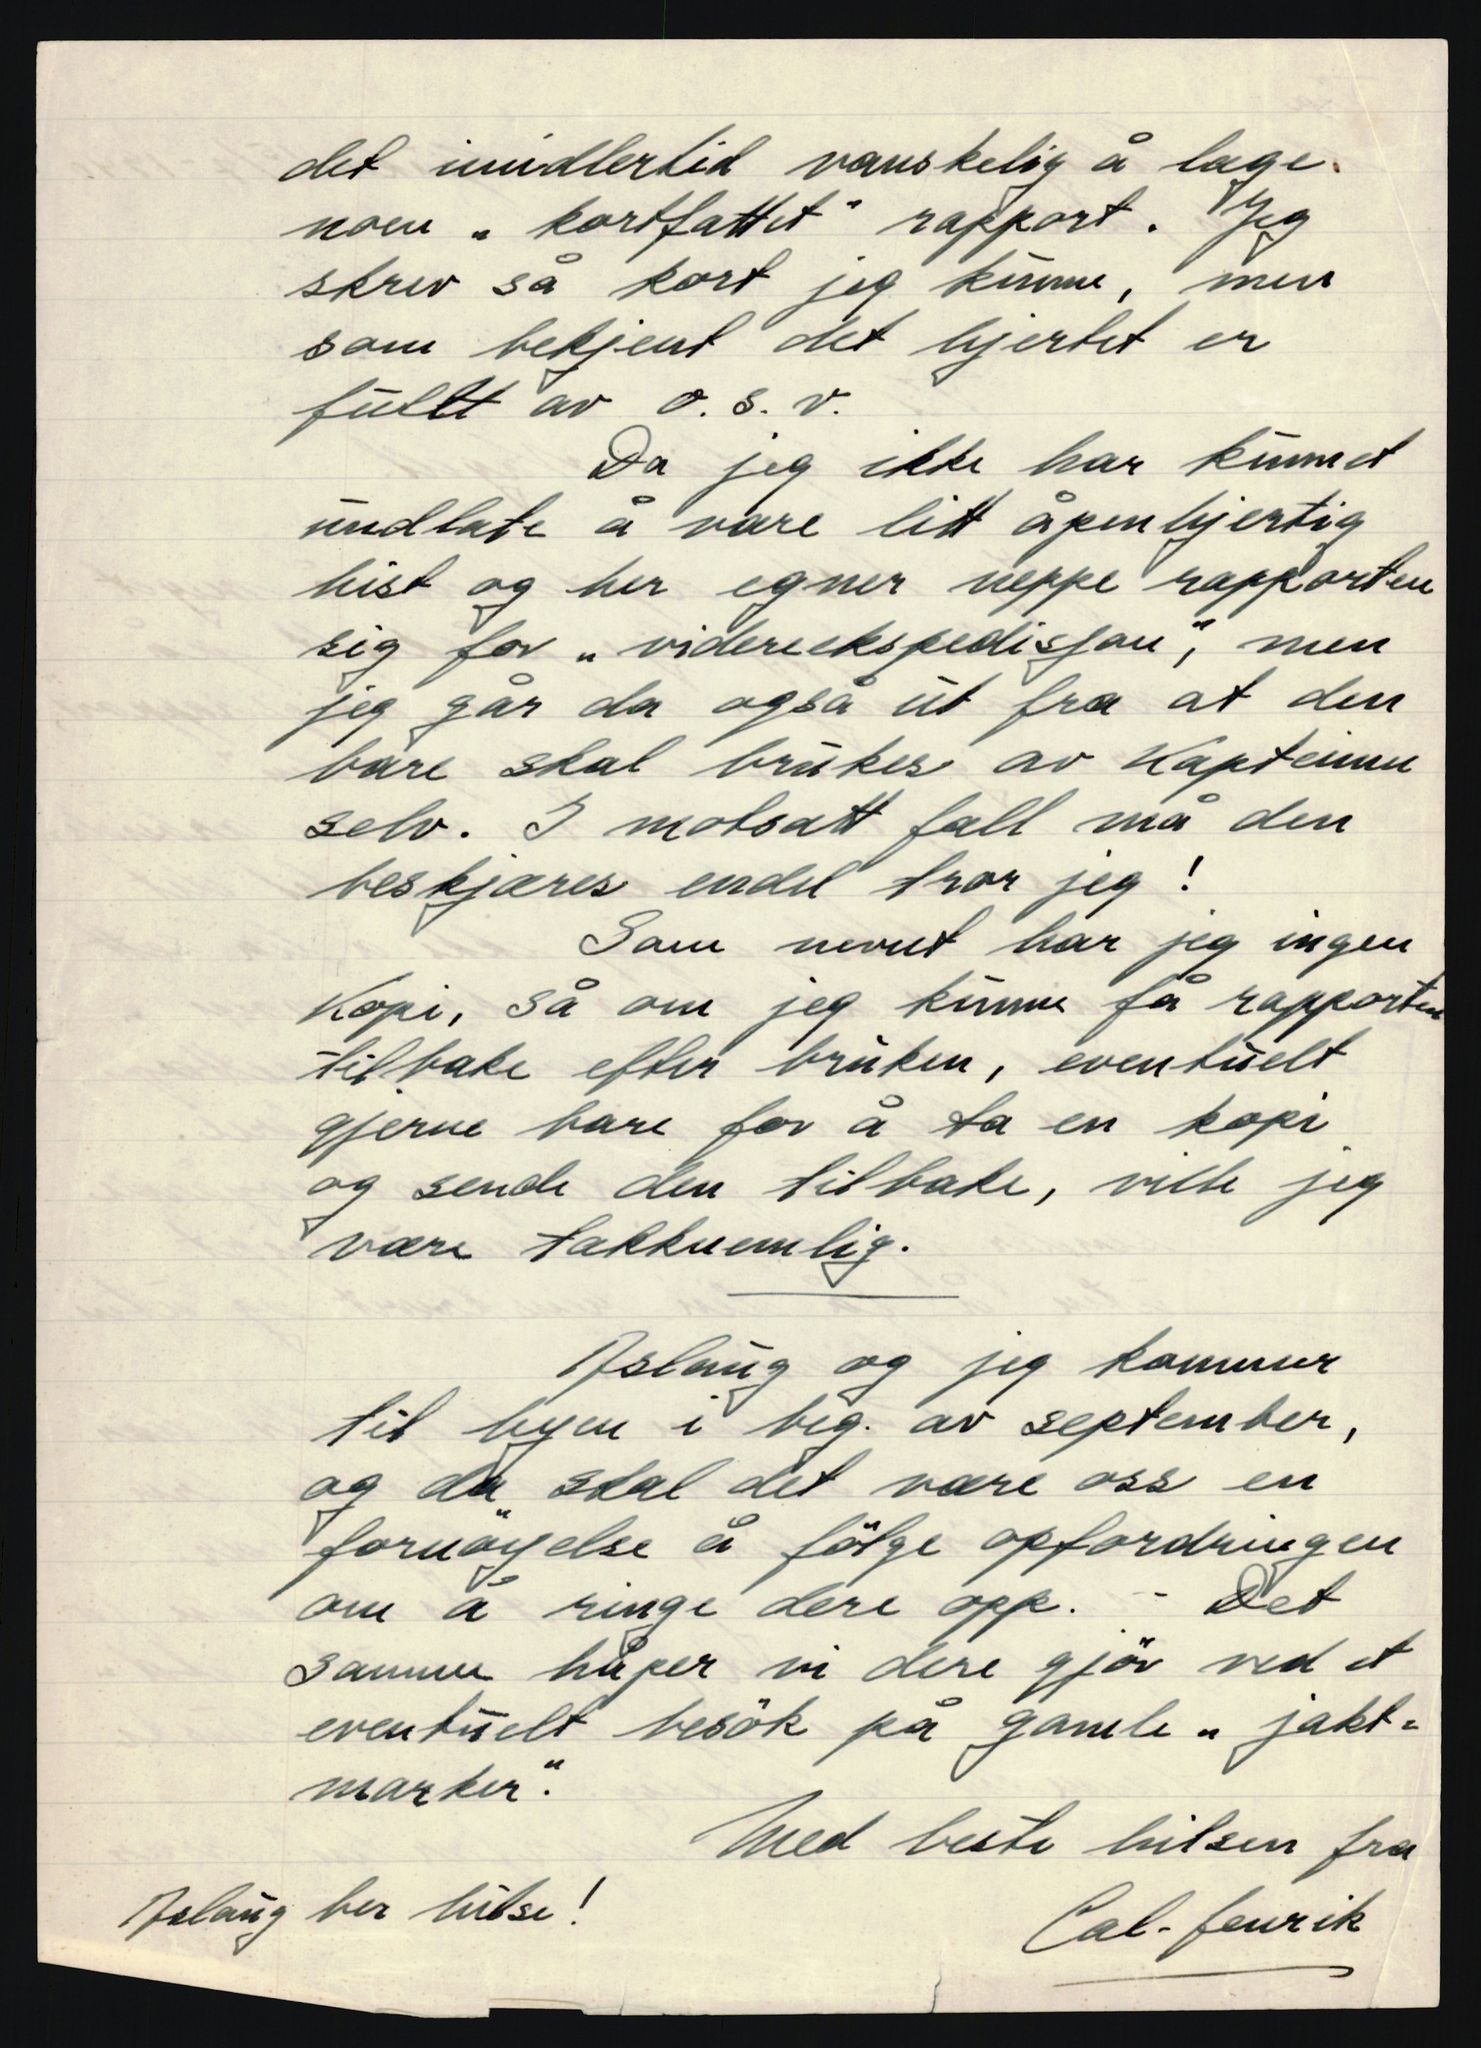 det imidlertid vanskelig å lage
noen „kortfattet" rapport. Jeg
skrev så kort jeg kunne, men
som bekjent det hjertet er
fullt av o. s. v.
Da jeg ikke har kunnet
undlate å være litt åpenhjertig
hist og her egner neppe rapporten
sig for „videreekspedisjon", men
jeg går da også ut fra at den
bare skal brukes av Kapteinen
selv. I motsatt fall må den
beskjæres endel tror jeg!
Som nevnt har jeg ingen
Kopi, så om jeg kunne få rapporten
tilbake efter bruken, eventuelt
gjerne bare for å ta en kopi
og sende den tilbake, ville jeg
være takknemlig.
Aslaug og jeg kommer
til byen i beg. av september,
og da skal det være oss en
fornöyelse å fölge opfordringen
om å ringe dere opp. - Det
samme håper vi dere gjör ved et
eventuelt besök på gamle „jakt=
marker".
Med beste hilsen fra
Cal-fenrik
Aslaug ber hilse!